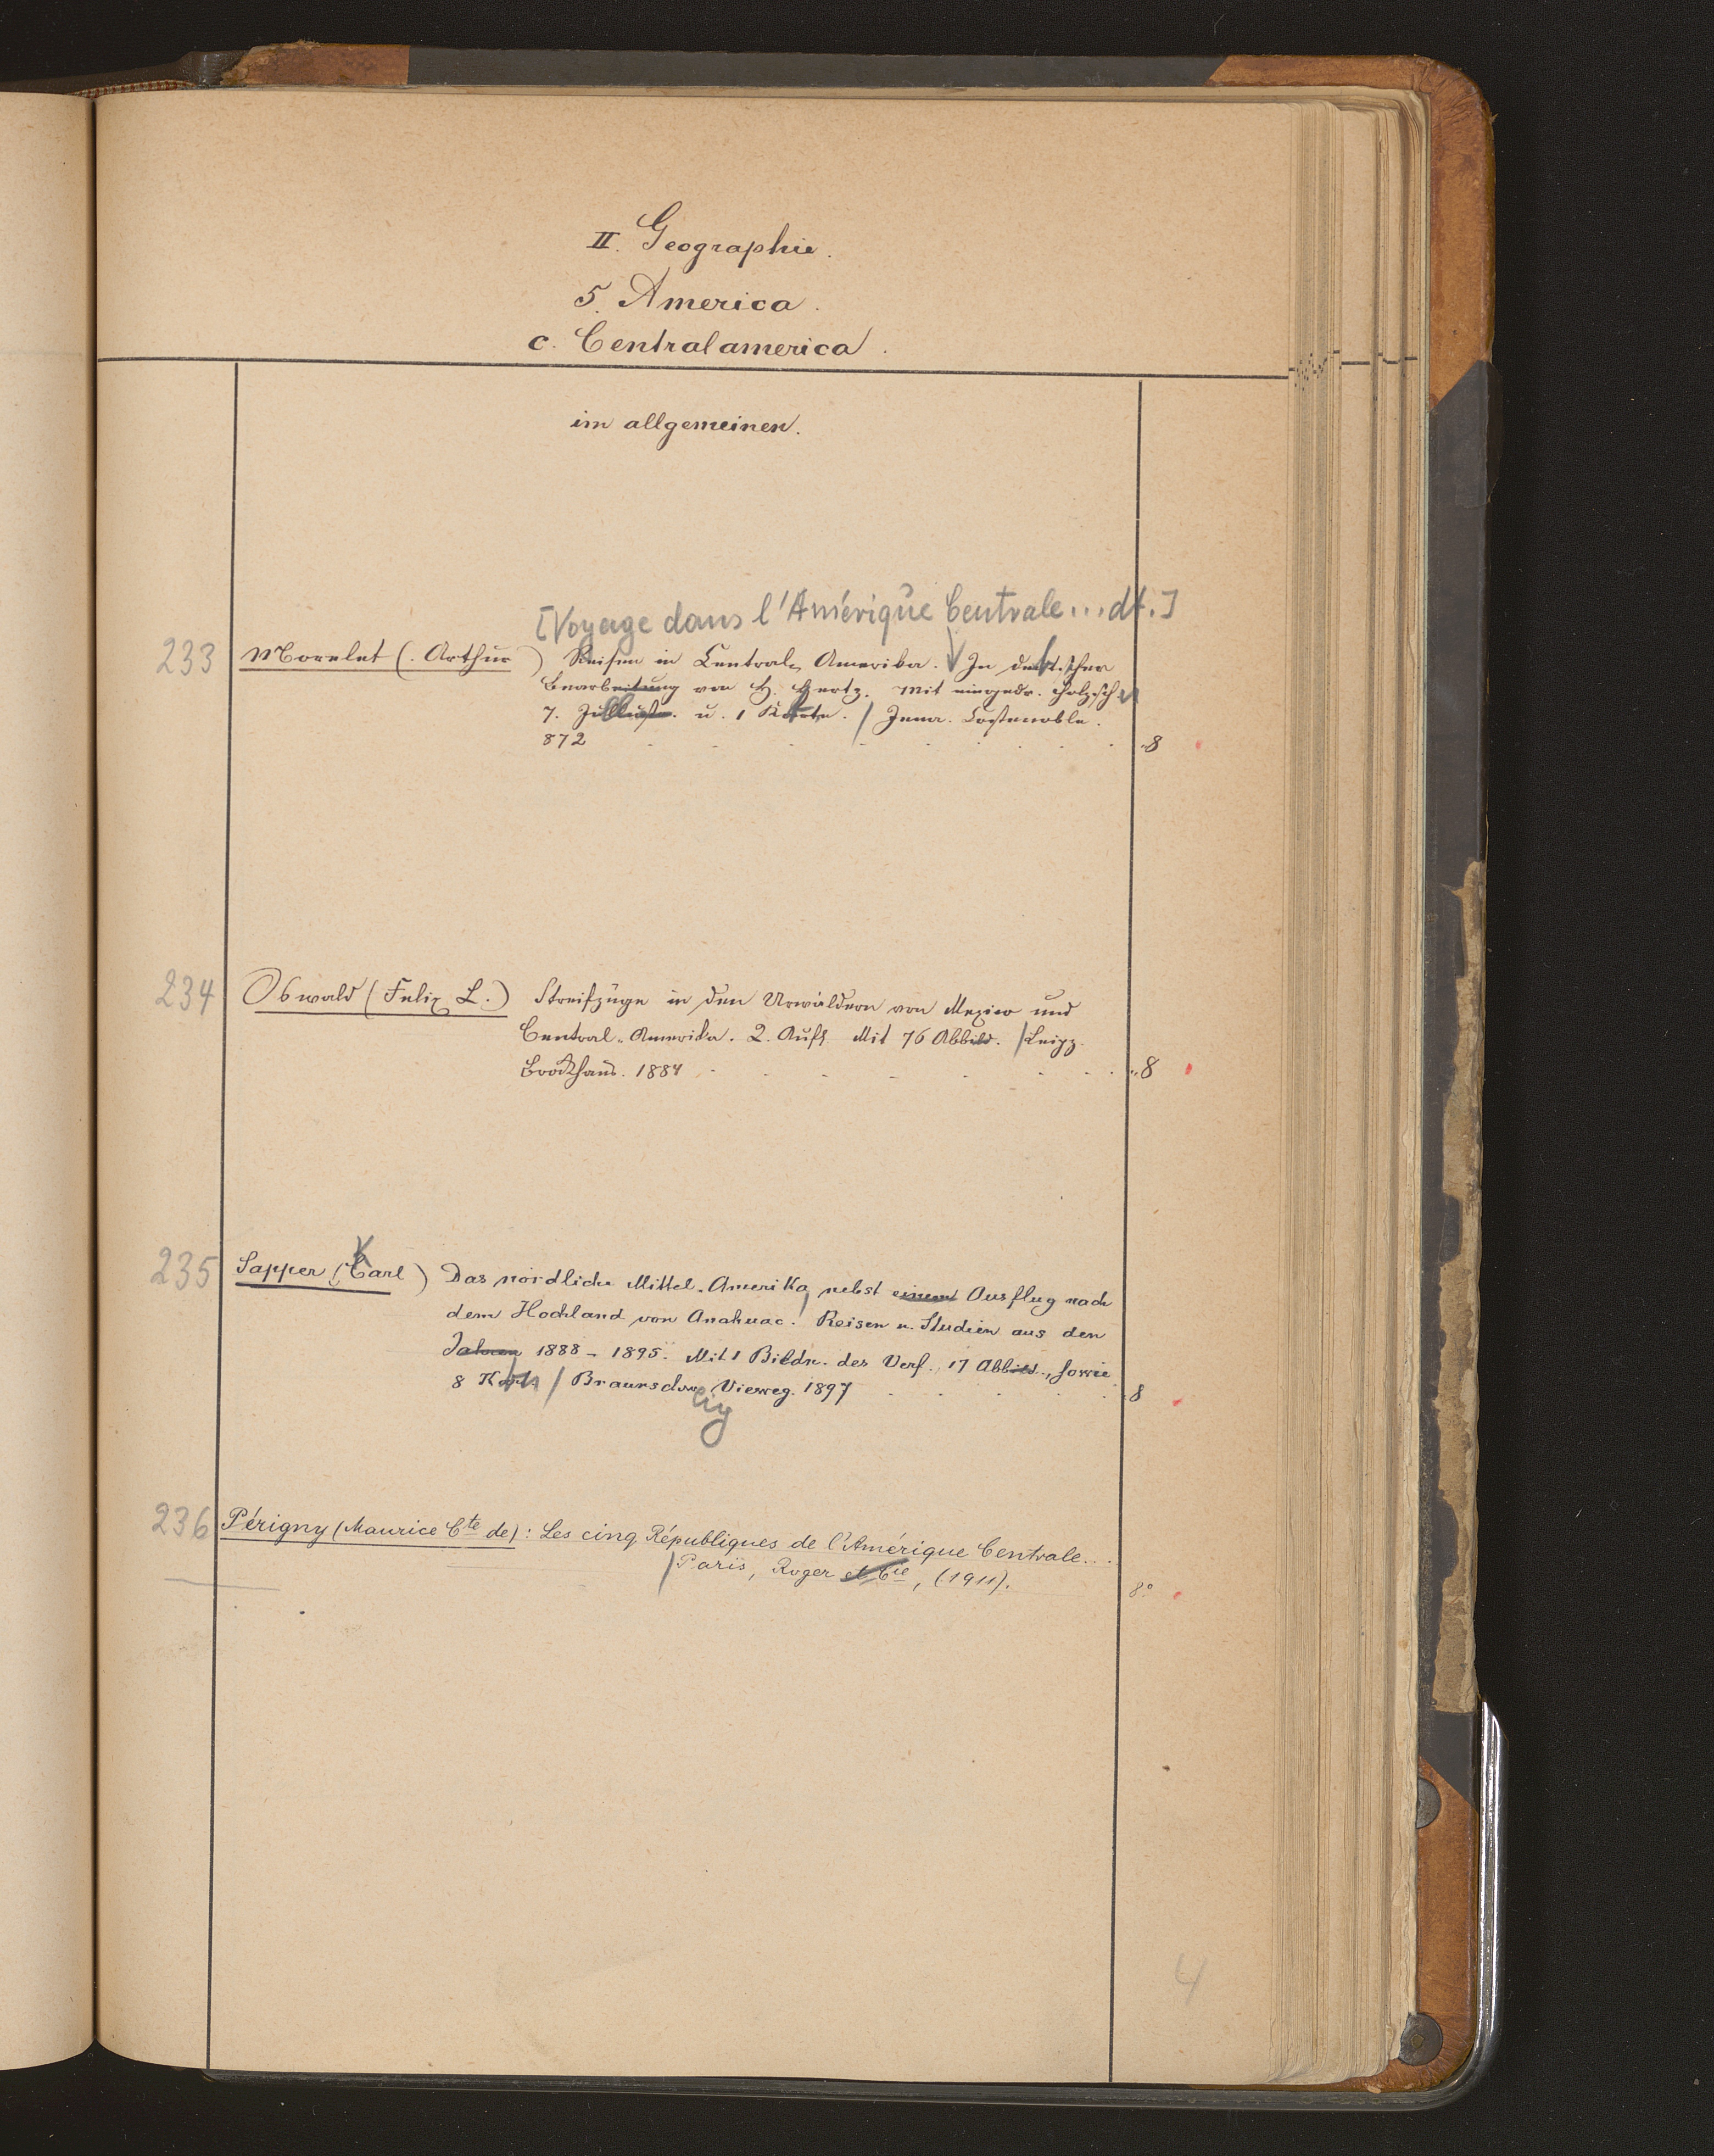 II. Geographie.
5. America.
c. Centralamerica.
im allgemeinen.
[Voyage dans l'Amérique Centrale... dt.]
233 Morelet (. Arthur ) Reisen in Central-Amerika. In deutscher
Bearbeitung von H. Hertz. Mit eingedr. Holzsch
7. Illustr. u. 1 Karte. / Jena. Costenoble.
872 . . . . . . . . . . 8
234 Oswald (Felix L.) Streifzüge in den Urwäldern von Mexico und
Central-Amerika. 2. Aufl. Mit 76 Abbild. / Leipz.
Brockhaus. 1884 . . . . . . . 8
K
235 Sapper (Carl) Das nördliche Mittel-Amerika, nebst einem Ausflug nach
dem Hochland von Anahuac. Reisen u. Studien aus den
Jahren 1888-1895. Mit 1 Bildn. des Verf., 17 Abbild., sowie
8 / Braunschw. Vieweg. 1897 . . . . . 8
eig
236 Périgny (Maurice Cte de): Les cinq Républiques de l'Amérique Centrale...
/ Paris, Roger et Cie, (1911). 8°
4